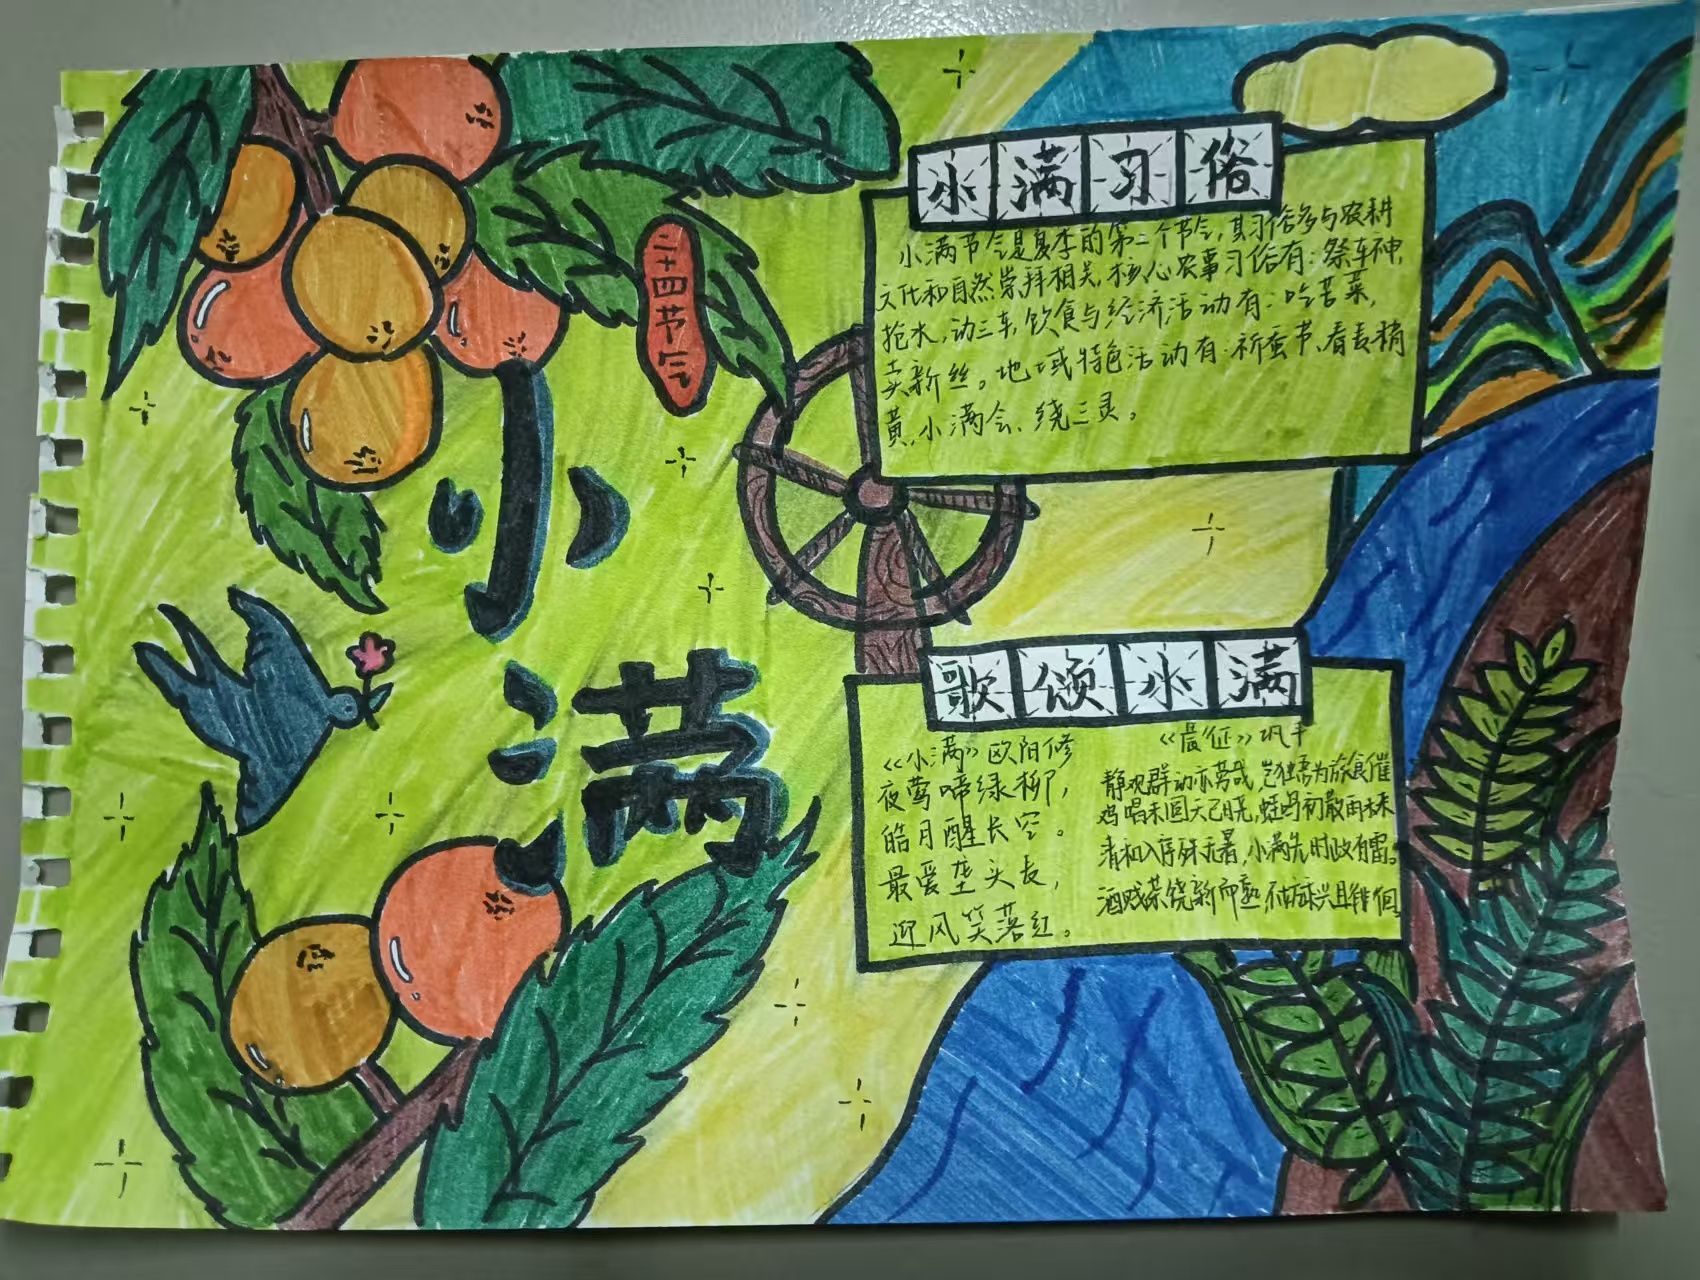 小满
二十四节气
小满习俗
小满节气是夏季的第二个节气,其习俗多与农耕
文化和自然崇拜相关,核心农事习俗有:祭车神,
抢水,动三车,饮食与经济活动有:吃苦菜,
卖新丝。地域特色活动有:祈蚕节、看麦梢
黄,小满会、绕三灵。
歌颂小满
《小满》欧阳修
夜莺啼绿柳,
皓月醒长空。
最爱垄头麦,
迎风笑落红。
《晨征》巩丰
静观群动亦劳哉,岂独吾为旅食催
鸡唱未圆天已晓,蛙鸣初散雨还来
清和入序殊无暑,小满先时政有雷。
酒贱茶饶新而熟,不妨乘兴且徘徊